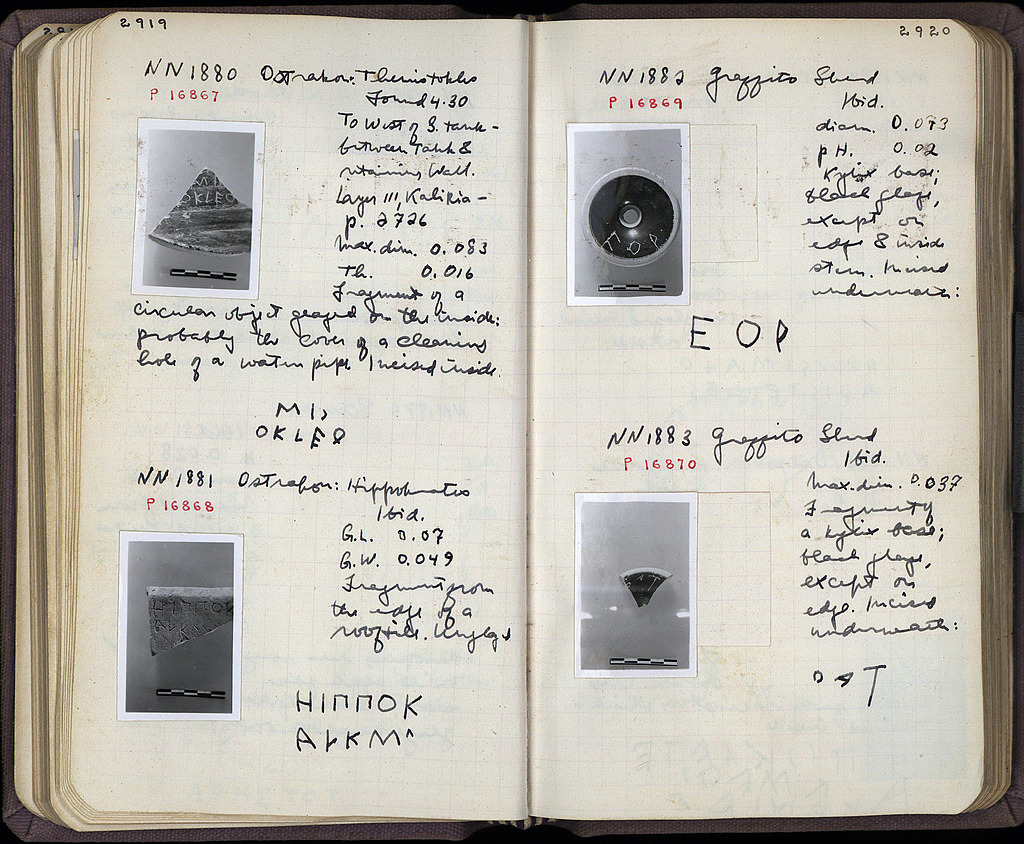 2919
NN1880 Ostrakon: Themistokles
P 16867
Found 4.30
To West of S. tank -
between Tank &
retaining Wall.
Layer III, Kalikia -
p. 2726
Max. dim. 0.083
Th. 0.016
Fragment of a
circular object glazed on the inside:
probably the cover of a cleaning
hole of a water pipe Incised inside.
OKLEO
OKLEO
NN 1881 Ostrakon: Hippokrates
P 16868
Ibid.
G.L. 0.07
G.W. 0.049
Fragment from
the edge of a
rooftile. Unglazed
ΗΙΠΠΟΚ
ΗΙΠΠΟΚ
2920
NN1882 Graffito Sherd
P 16869
Ibid.
diam. 0.073
pH. 0.02
Kylix base;
black glaze,
except on
edge & inside
stem. Incised
underneath:
EOP
EOP
NN1883 Graffito Sherd
P 16870
Ibid.
Max. dim. 0.037
Fragment of
a kylix base;
black glaze,
except on
edge. Incised
underneath: